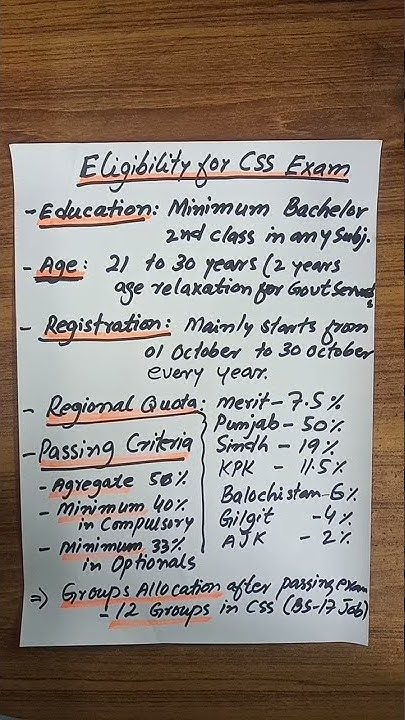 Eligibility for CSS Exam
- Education: Minimum Bachelor
2nd class in any Subj.
- Age: 21 to 30 years (2 years
age relaxation for Govt Servants
- Registration: Mainly starts from
01 October to 30 October
every year.
- Regional Quota: merit - 7.5%
Punjab - 50%
Sindh - 19%
KPK - 11.5%
Balochistan - 6%
Gilgit - 4%
AJK - 2%
- Passing Criteria
- Agregate 50%
- Minimum 40%
in Compulsory
- Minimum 33%
in Optionals
⇒ Groups Allocation after passing exam
- 12 Groups in CSS (BS-17 Job)